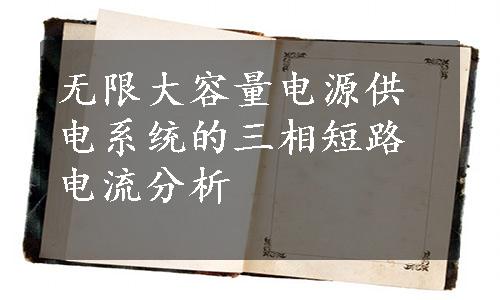 无限大容量电源供
电系统的三相短路
电流分析